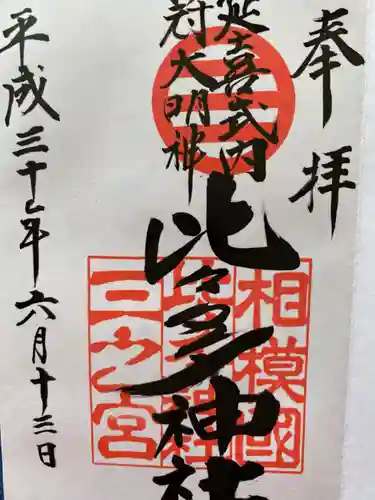 奉拝
延喜式内
冠大明神
比々多神社
平成三十年六月十三日
相模國
三之宮